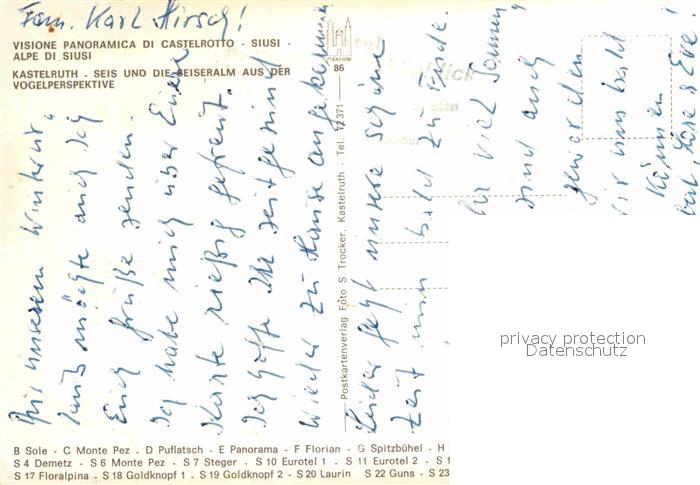 Fam. Karl Hirsch!
VISIONE PANORAMICA DI CASTELROTTO - SIUSI -
ALPE DI SIUSI
KASTELRUTH - SEIS UND DIE SEISERALM AUS DER
VOGELPERSPEKTIVE
MANFRINI
86
Aus unserem Winterur-
laub möchte auch ich
Euch Grüße senden.
Ich habe mich über Eure
Karte rießig gefreut.
Ich hoffe Ihr seit gesund
wieder zu Hause angekommen
Leider geht unsere schöne
Zeit nun bald zu Ende.
Postkartenverlag Foto S. Trocker, Kastelruth - Tel. 72371
viel Sonne
sind auch
geworden
wir uns bald
können
& Eure!
privacy protection
Datenschutz
B Sole - C Monte Pez - D Puflatsch - E Panorama - F Florian - G Spitzbühel - H
S 4 Demetz - S 6 Monte Pez - S 7 Steger - S 10 Eurotel 1 - S 11 Eurotel 2 - S 1
S 17 Floralpina - S 18 Goldknopf 1 - S 19 Goldknopf 2 - S 20 Laurin S 22 Guns - S 23